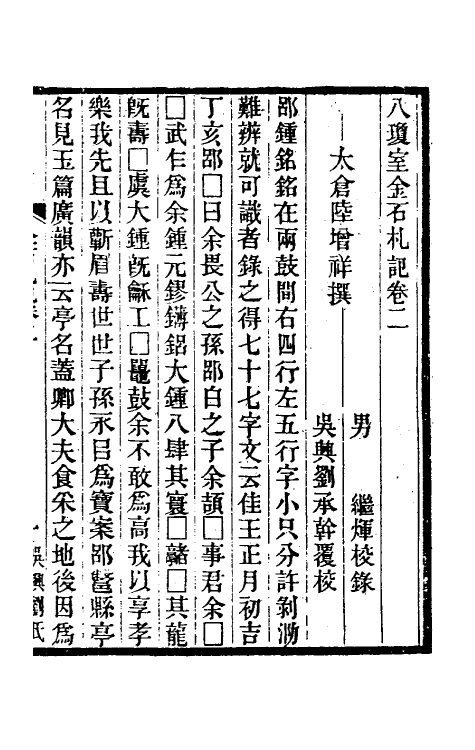 八瓊室金石札記卷二
太倉陸增祥撰
男　繼煇校錄
吳興劉承幹覆校
郘鍾銘銘在兩鼓間右四行左五行字小只分許剝泐
難辨就可識者錄之得七十七字文云隹王正月初吉
丁亥郘□曰余畏公之孫郘白之子余頡□事君余□
□武乍為余鍾元鏐鏄鋁大鍾八肆其竈□䜴□其龍
旣壽□虡大鍾旣龢工□鼉鼓余不敢為高我以享孝
樂我先且以蘄眉壽世世子孫永㠯為寶案郘𨟎縣亭
名見玉篇廣韻亦云亭名蓋卿大夫食采之地後因為
吳興劉氏